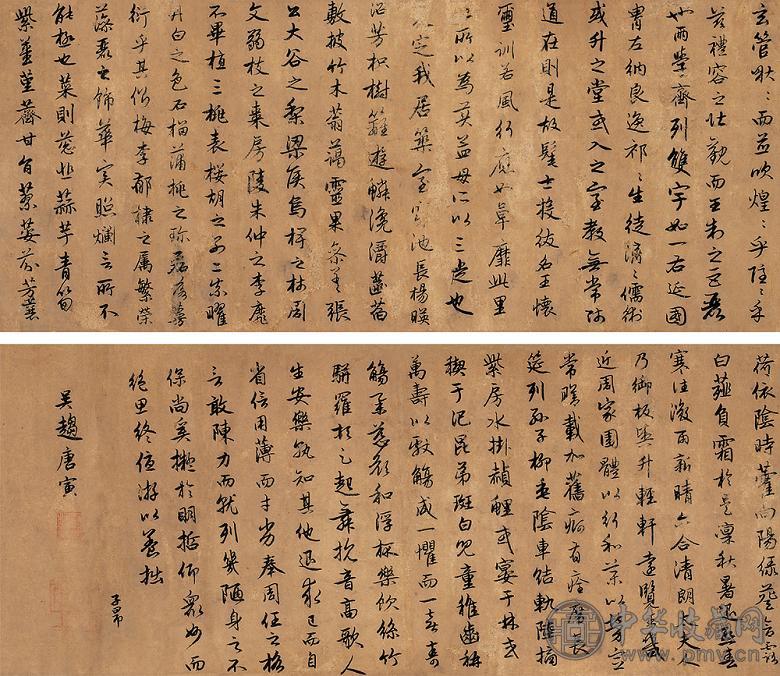 玄管啾〻而並吹煌〻乎隱〻乎
茲禮容之壯觀而王制之巨麗
也兩學齊列雙宇如一右延國
胄左納良逸祁〻生徒濟〻儒術
或升之堂或入之室教無常師
道在則是故髦士投紱名王懷
璽訓若風行應如草靡此里
所以為美孟母所以三徙也
定我居築室穿池長楊映
沼芳枳樹籬遊鱗瀺灂菡萏
敷披竹木蓊藹靈果參差張
公大谷之梨梁侯烏椑之柿周
文弱枝之棗房陵朱仲之李靡
不畢植三桃表櫻胡之別二柰曜
丹白之色石榴蒲桃之珍磊落蔓
衍乎其側梅李郁棣之屬繁榮
藻麗之飾華實照爛言所不
能極也菜則蔥韭蒜芋青筍
紫薑堇薺甘旨蓼荾芬芳蘘
荷依陰時藿向陽綠葵含露
白薤負霜於是凜秋暑退熙春
寒往微雨新晴六合清朗太夫人
乃御板輿升輕軒遠覽王畿
近周家園體以行和藥以勞宣
常膳載加舊痾有痊於是席長
筵列孫子柳垂陰車結軌陸摘
紫房水掛赬鯉或宴于林或
禊于汜昆弟斑白兒童稚齒稱
萬壽以獻觴咸一懼而一喜壽
觴舉慈顏和浮杯樂飲絲竹
駢羅頓足起舞抗音高歌人
生安樂孰知其他退求己而自
省信用薄而才劣奉周任之格
言敢陳力而就列幾陋身之不
保尚奚擬於明哲仰眾妙而
絕思終優游以養拙
子昂
吳趨唐寅
中华收藏网
www.pmv.cn